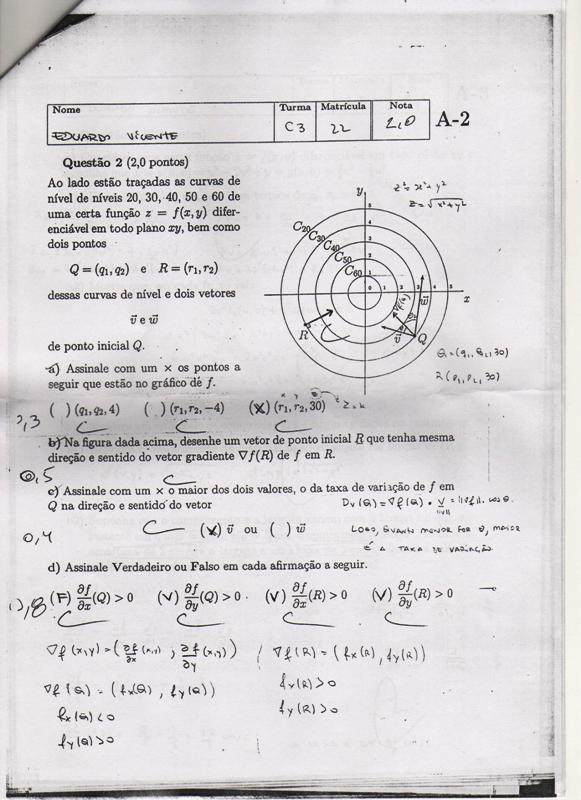 Nome Turma Matrícula Nota
EDUARDO VICENTE C3 22 2,0 A-2
Questão 2 (2,0 pontos)
Ao lado estão traçadas as curvas de
nível de níveis 20, 30, 40, 50 e 60 de
uma certa função z = f(x, y) difer-
enciável em todo plano xy, bem como
dois pontos
Q = (q₁, q₂) e R = (r₁, r₂)
dessas curvas de nível e dois vetores
v⃗ e w⃗
de ponto inicial Q.
z² = x² + y²
z = √x² + y²
y
5
4
3
2
1
C₂₀
C₃₀
C₄₀
C₅₀
C₆₀
0 1 2 3 4 5 x
R
∇f(Q)
w⃗
v⃗
Q
Q = (q₁, q₂, 30)
R (r₁, r₂, 30)
a) Assinale com um × os pontos a
seguir que estão no gráfico de f.
0,3 ( ) (q₁, q₂, 4) ( ) (r₁, r₂, −4) (X) (r₁, r₂, 30) z = k
b) Na figura dada acima, desenhe um vetor de ponto inicial R que tenha mesma
direção e sentido do vetor gradiente ∇f(R) de f em R.
0,5
c) Assinale com um × o maior dos dois valores, o da taxa de variação de f em
Q na direção e sentido do vetor
Dv(Q) = ∇f(Q) • v/||v|| = ||∇f||. cos θ.
0,4 (X) v⃗ ou ( ) w⃗
LOGO, QUANTO MENOR FOR θ, MAIOR
É A TAXA DE VARIAÇÃO
d) Assinale Verdadeiro ou Falso em cada afirmação a seguir.
0,8 (F) ∂f/∂x (Q) > 0 (V) ∂f/∂y (Q) > 0 (V) ∂f/∂x (R) > 0 (V) ∂f/∂y (R) > 0
∇f (x,y) = (∂f/∂x (x,y) , ∂f/∂y (x,y))
∇f(Q) = (fx(Q) , fy(Q))
fx(Q) < 0
fy(Q) > 0
∇f(R) = (fx(R) , fy(R))
fx(R) > 0
fy(R) > 0